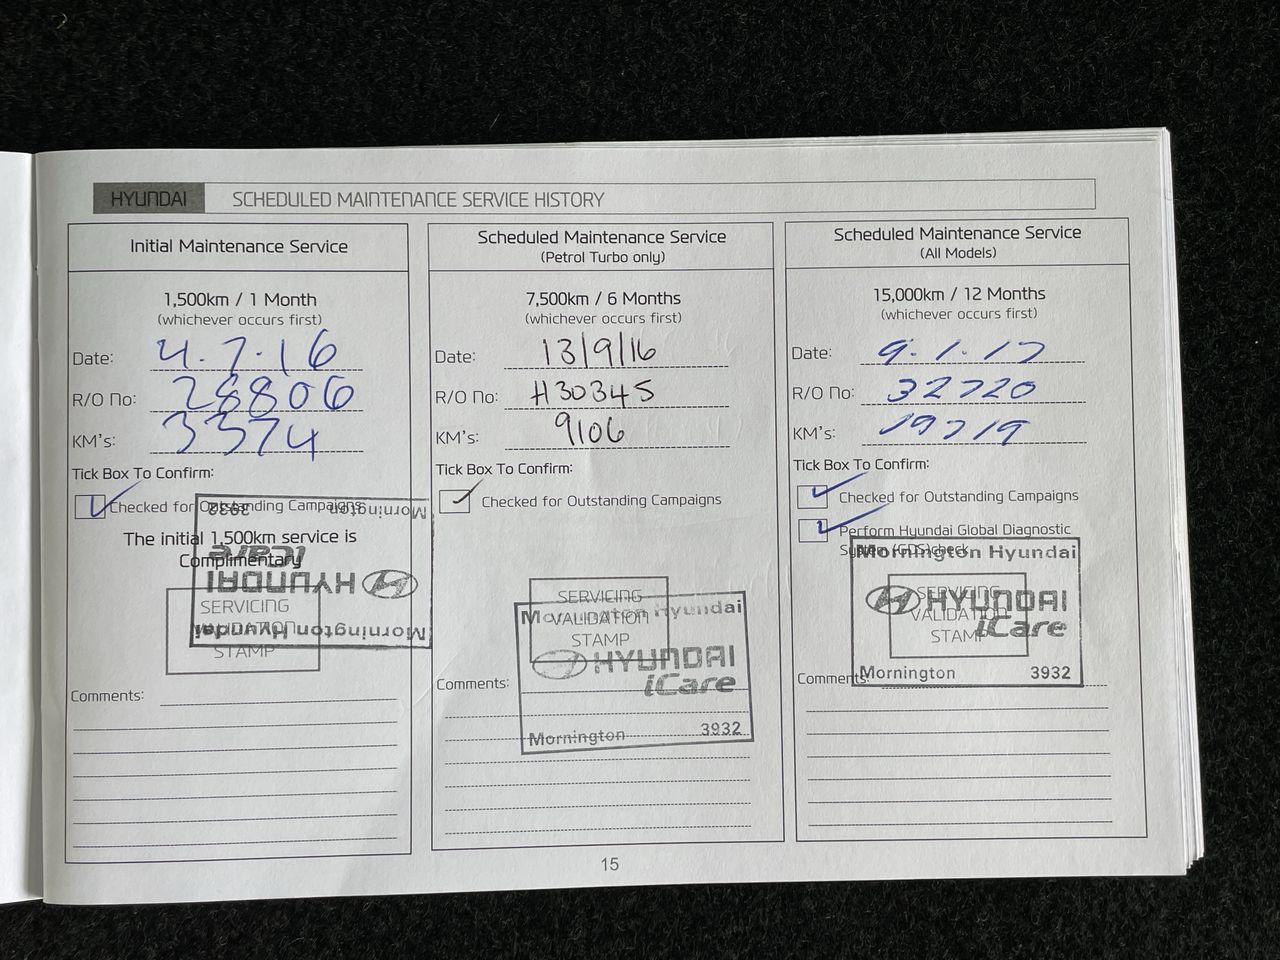 HYUNDAI SCHEDULED MAINTENANCE SERVICE HISTORY
Initial Maintenance Service
1,500km / 1 Month
(whichever occurs first)
Date: 4.7.16
R/O No: 28806
KM's: 3374
Tick Box To Confirm:
Checked for Outstanding Campaigns
The initial 1,500km service is
Complimentary
SERVICING
VALIDATION
STAMP
Mornington Hyundai
HYUNDAI
iCare
Mornington 3932
Comments:
Scheduled Maintenance Service
(Petrol Turbo only)
7,500km / 6 Months
(whichever occurs first)
Date: 13/9/16
R/O No: H30345
KM's: 9106
Tick Box To Confirm:
Checked for Outstanding Campaigns
SERVICING
VALIDATION
STAMP
Mornington Hyundai
HYUNDAI
iCare
Mornington 3932
Comments:
Scheduled Maintenance Service
(All Models)
15,000km / 12 Months
(whichever occurs first)
Date: 9.1.17
R/O No: 32720
KM's: 19719
Tick Box To Confirm:
Checked for Outstanding Campaigns
Perform Hyundai Global Diagnostic
System (GDS)check
SERVICING
VALIDATION
STAMP
Mornington Hyundai
HYUNDAI
iCare
Mornington 3932
Comments:
15